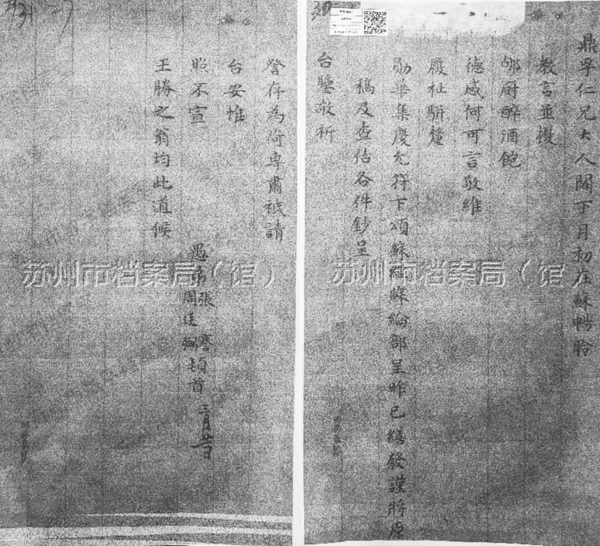 鼎孚仁兄大人閣下月初在蘇暢聆
教言並擾
郇廚醉酒飽
德感何可言敬維
履祉駢釐
勛華集慶允符下頌蘇經蘇綸部呈昨已繕發謹將原
稿及查估各件鈔呈
台鑒敬祈
詧存為荷專肅祗請
台安惟
照不宣
王勝之翁均此道候
愚弟張謇
周廷弼頓首
三月廿日
苏州市档案局（馆）
苏州市档案局（馆）